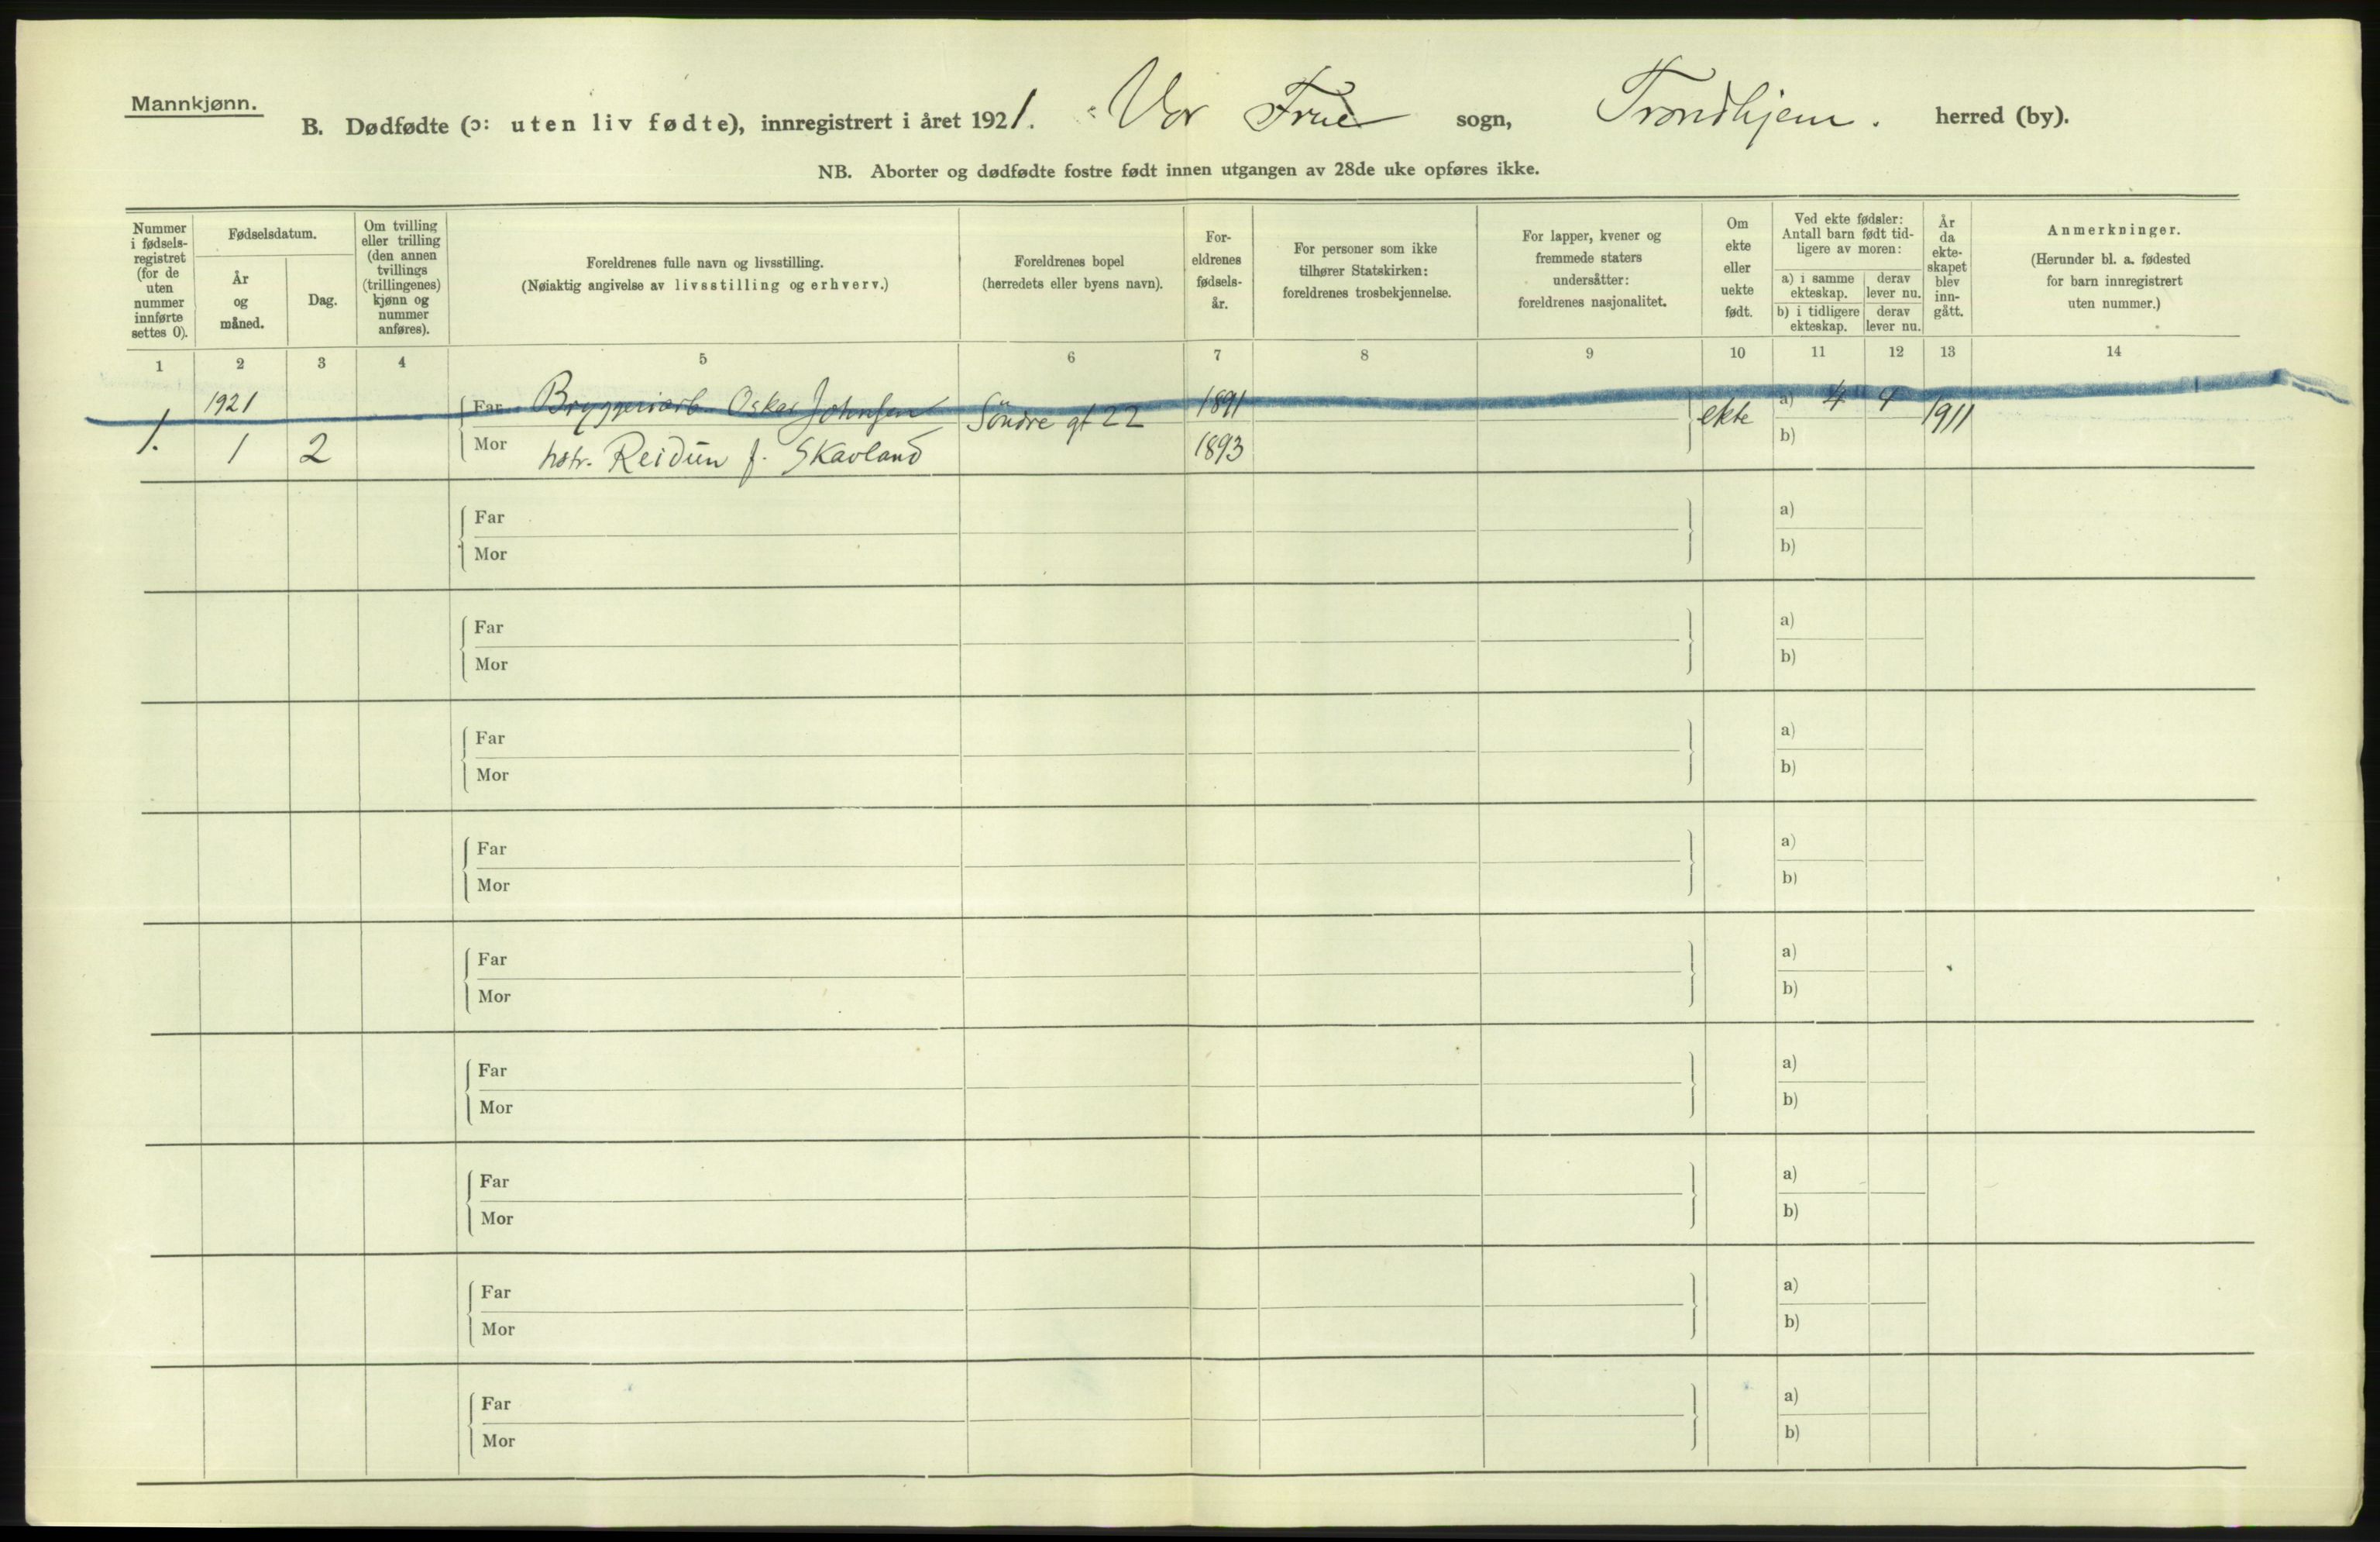 Mannkjønn.
B. Dødfødte (ɔ: uten liv fødte), innregistrert i året 1921. Vor Frue sogn, Trondhjem. herred (by).
NB. Aborter og dødfødte fostre født innen utgangen av 28de uke opføres ikke.
Nummer
i fødsels-
registret
(for de
uten
nummer
innførte
settes 0).
Fødselsdatum.
År
og
måned.
Dag.
Om tvilling
eller trilling
(den annen
tvillings
(trillingenes)
kjønn og
nummer
anføres).
Foreldrenes fulle navn og livsstilling.
(Nøiaktig angivelse av livsstilling og erhverv.)
Foreldrenes bopel
(herredets eller byens navn).
For-
eldrenes
fødsels-
år.
For personer som ikke
tilhører Statskirken:
foreldrenes trosbekjennelse.
For lapper, kvener og
fremmede staters
undersåtter:
foreldrenes nasjonalitet.
Om
ekte
eller
uekte
født.
Ved ekte fødsler:
Antall barn født tid-
ligere av moren:
a) i samme
ekteskap.
derav
lever nu.
b) i tidligere
ekteskap.
derav
lever nu.
År
da
ekte-
skapet
blev
inn-
gått.
Anmerkninger.
(Herunder bl. a. fødested
for barn innregistrert
uten nummer.)
1 2 3 4 5 6 7 8 9 10 11 12 13 14
1921
Far Bryggeriarb. Oskar Johnsen Söndre gt 22 1891 ekte a) 4 4 1911
1. 1 2 Mor hstr. Reidun f. Skavland 1893 b)
Far a)
Mor b)
Far a)
Mor b)
Far a)
Mor b)
Far a)
Mor b)
Far a)
Mor b)
Far a)
Mor b)
Far a)
Mor b)
Far a)
Mor b)
Far a)
Mor b)